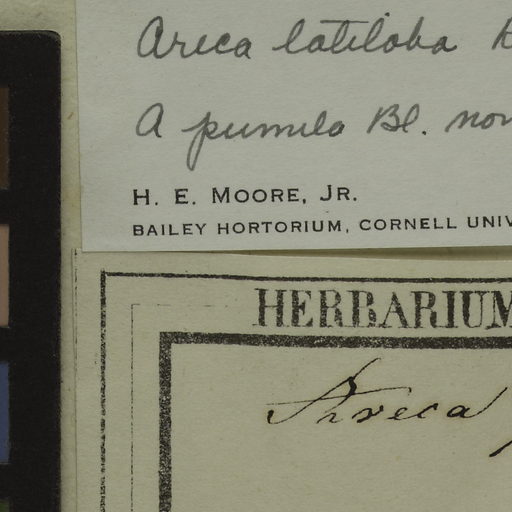 Areca latiloba
A pumila Bl. non
H. E. MOORE, JR.
BAILEY HORTORIUM, CORNELL UNIV
HERBARIUM
Areca